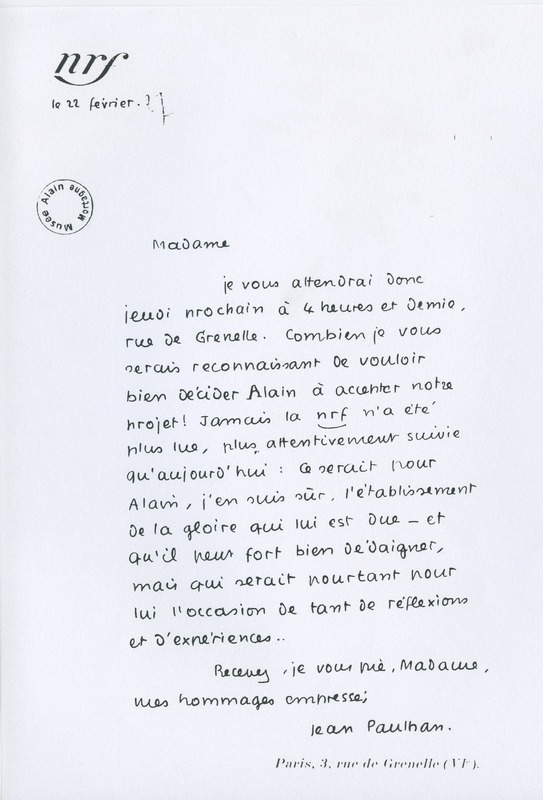 nrf
le 22 février. ?
Musée Alain Mortagne
Madame
je vous attendrai donc
jeudi prochain à 4 heures et demie,
rue de Grenelle. Combien je vous
serais reconnaissant de vouloir
bien décider Alain à accepter notre
projet! Jamais la nrf n'a été
plus lue, plus attentivement suivie
qu'aujourd'hui : ce serait pour
Alain, j'en suis sûr, l'établissement
de la gloire qui lui est due — et
qu'il peut fort bien dédaigner,
mais qui serait pourtant pour
lui l'occasion de tant de réflexions
et d'expériences..
Recevez, je vous prie, Madame,
mes hommages empressés
Jean Paulhan.
Paris, 3, rue de Grenelle (VIe).